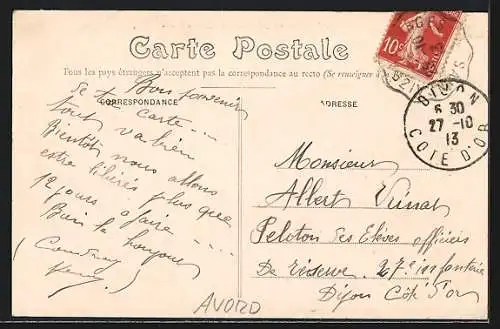 Carte Postale
Tous les pays étrangers n'acceptent pas la correspondance au recto (Se renseigner à
CORRESPONDANCE
ADRESSE
Bon souvenir
Je te carte ...
tout va bien
Bientôt nous allons
etre libérés plus que
12 jours a faire ...
Bien le bonjour
10c
DIJON
6 30
27-10
13
COTE D'OR
Monsieur
Albert
Peloton des Elèves officiers
De réserve 27e infanterie
Dijon Côte d'or
AVORD